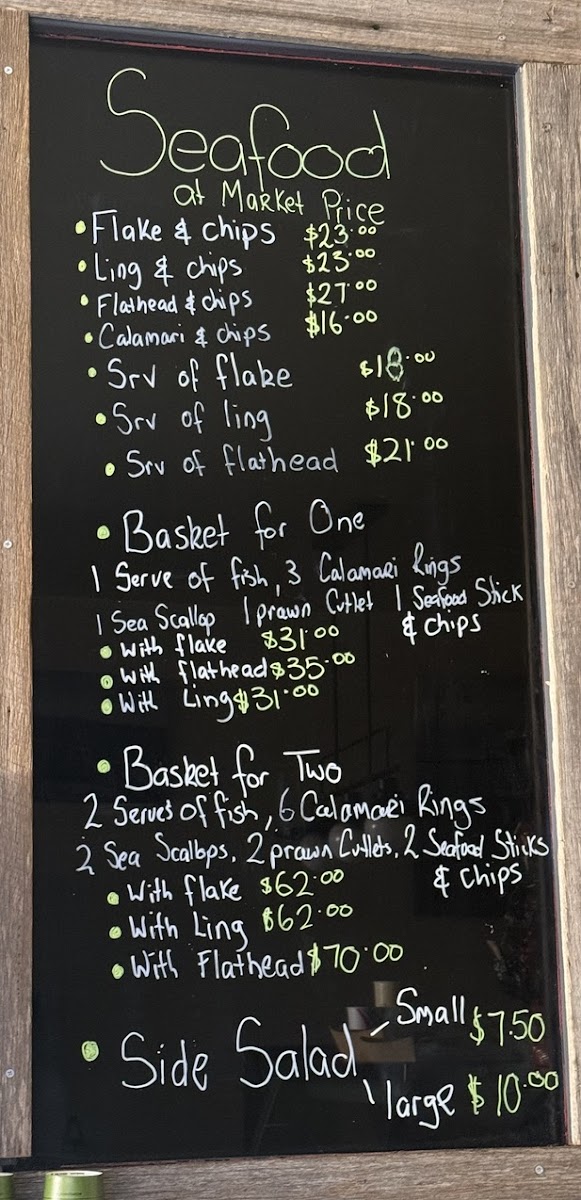 Seafood
at Market Price
• Flake & chips $23.00
• Ling & chips $23.00
• Flathead & chips $27.00
• Calamari & chips $16.00
• Srv of flake $18.00
• Srv of ling $18.00
• Srv of flathead $21.00
• Basket for One
1 Serve of fish, 3 Calamari Rings
1 Sea Scallop 1 prawn Cutlet 1 Seafood Stick
& chips
• With flake $31.00
• With flathead $35.00
• With Ling $31.00
• Basket for Two
2 Serves of fish, 6 Calamari Rings
2 Sea Scallops, 2 prawn Cutlets, 2 Seafood Sticks
& chips
• With flake $62.00
• With Ling $62.00
• With Flathead $70.00
• Side Salad
Small $7.50
large $10.00